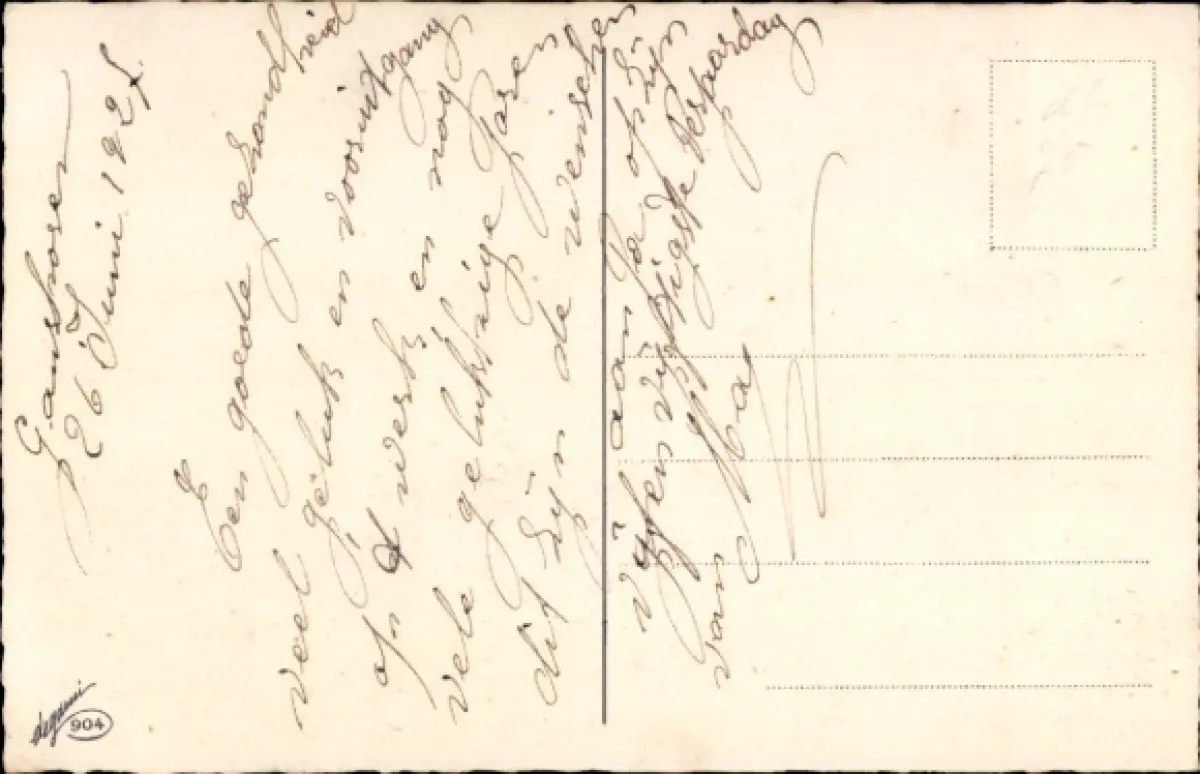 Ganshoren
26 Juni 1927.
Een goede gezondheid
veel geluk en vooruitgang
op t werk en nog
vele gelukkige Jaren
dit zijn de wenschen
aan Pa op zijn
vijfen vijftigste Verjaardag
van Ma
degami
904